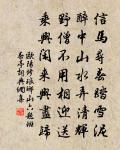 信馬尋春踏雪泥
醉中山水弄清輝
野僧不用相迎送
乘興閒來興盡歸
歐陽修琅琊山六題班
春亭詞典網書